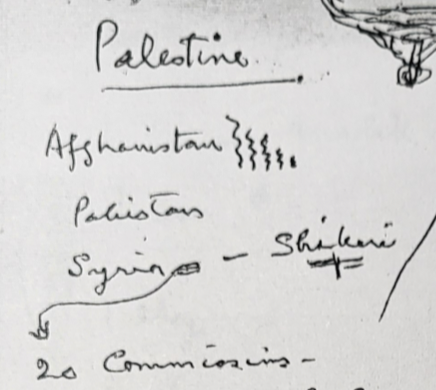 Palestine.
Afghanistan
Pakistan
Syria - Shikari
20 Commissins -